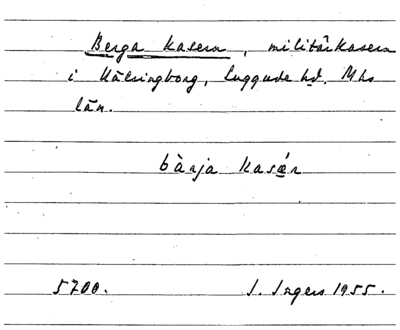 Berga kasern, militärkasern
i Hälsingborg, Luggude hd. Mhs
län.
bàrja kasǽrn
5700. I. Ingers 1955.